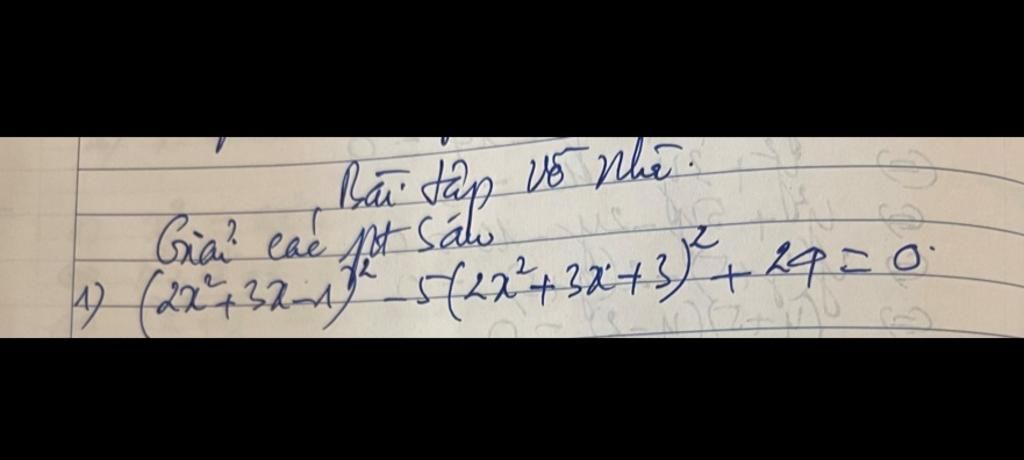 Bài tập về nhà.
Giải các pt sau
1) (2x²+3x-1)² - 5(2x²+3x+3)² + 24 = 0.